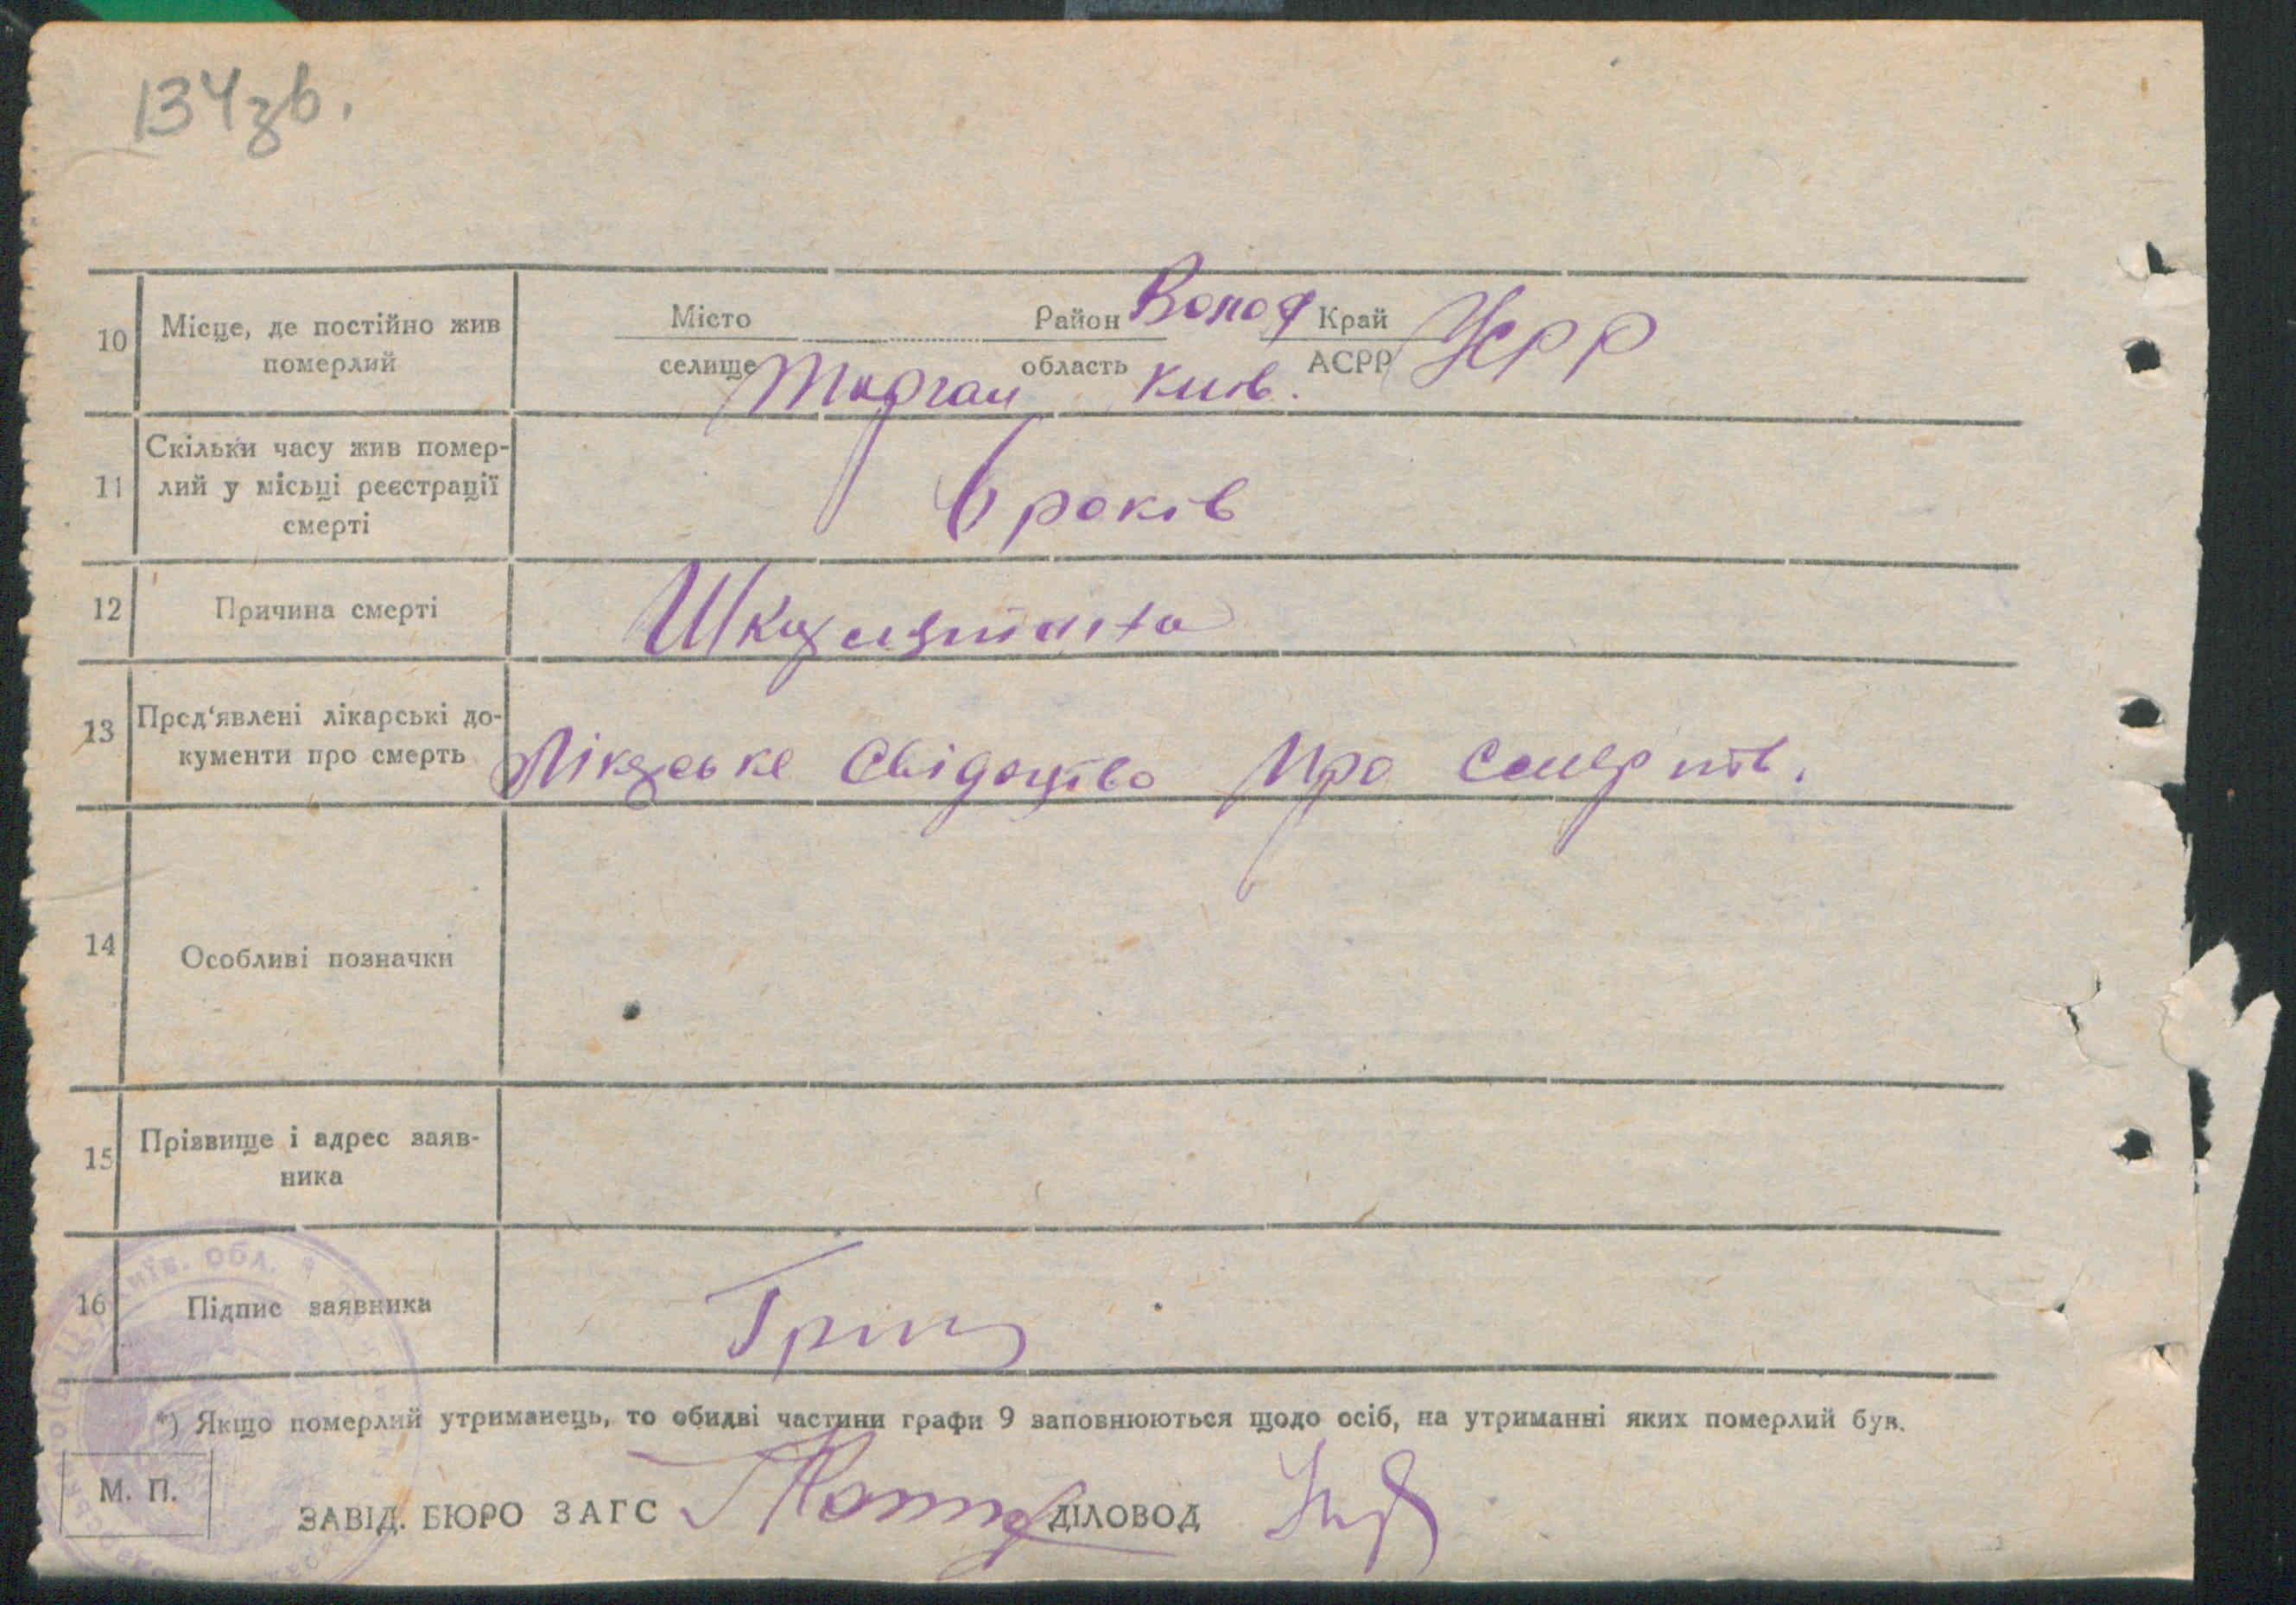 134зв.
10 Місце, де постійно жив померлий
Місто селище Тарган Район Волод область Київ. Край АСРР УСРР
11 Скільки часу жив помер-
лий у місьці реєстрації
смерті
6 років
12 Причина смерті
13 Пред'явлені лікарські до-
кументи про смерть
Лікарське свідоцтво про смерть.
14 Особливі позначки
15 Прізвище і адрес заяв-
ника
16 Підпис заявника
*) Якщо померлий утриманець, то обидві частини графи 9 заповнюються щодо осіб, на утриманні яких померлий був.
М. П.
ЗАВІД. БЮРО ЗАГС ДІЛОВОД